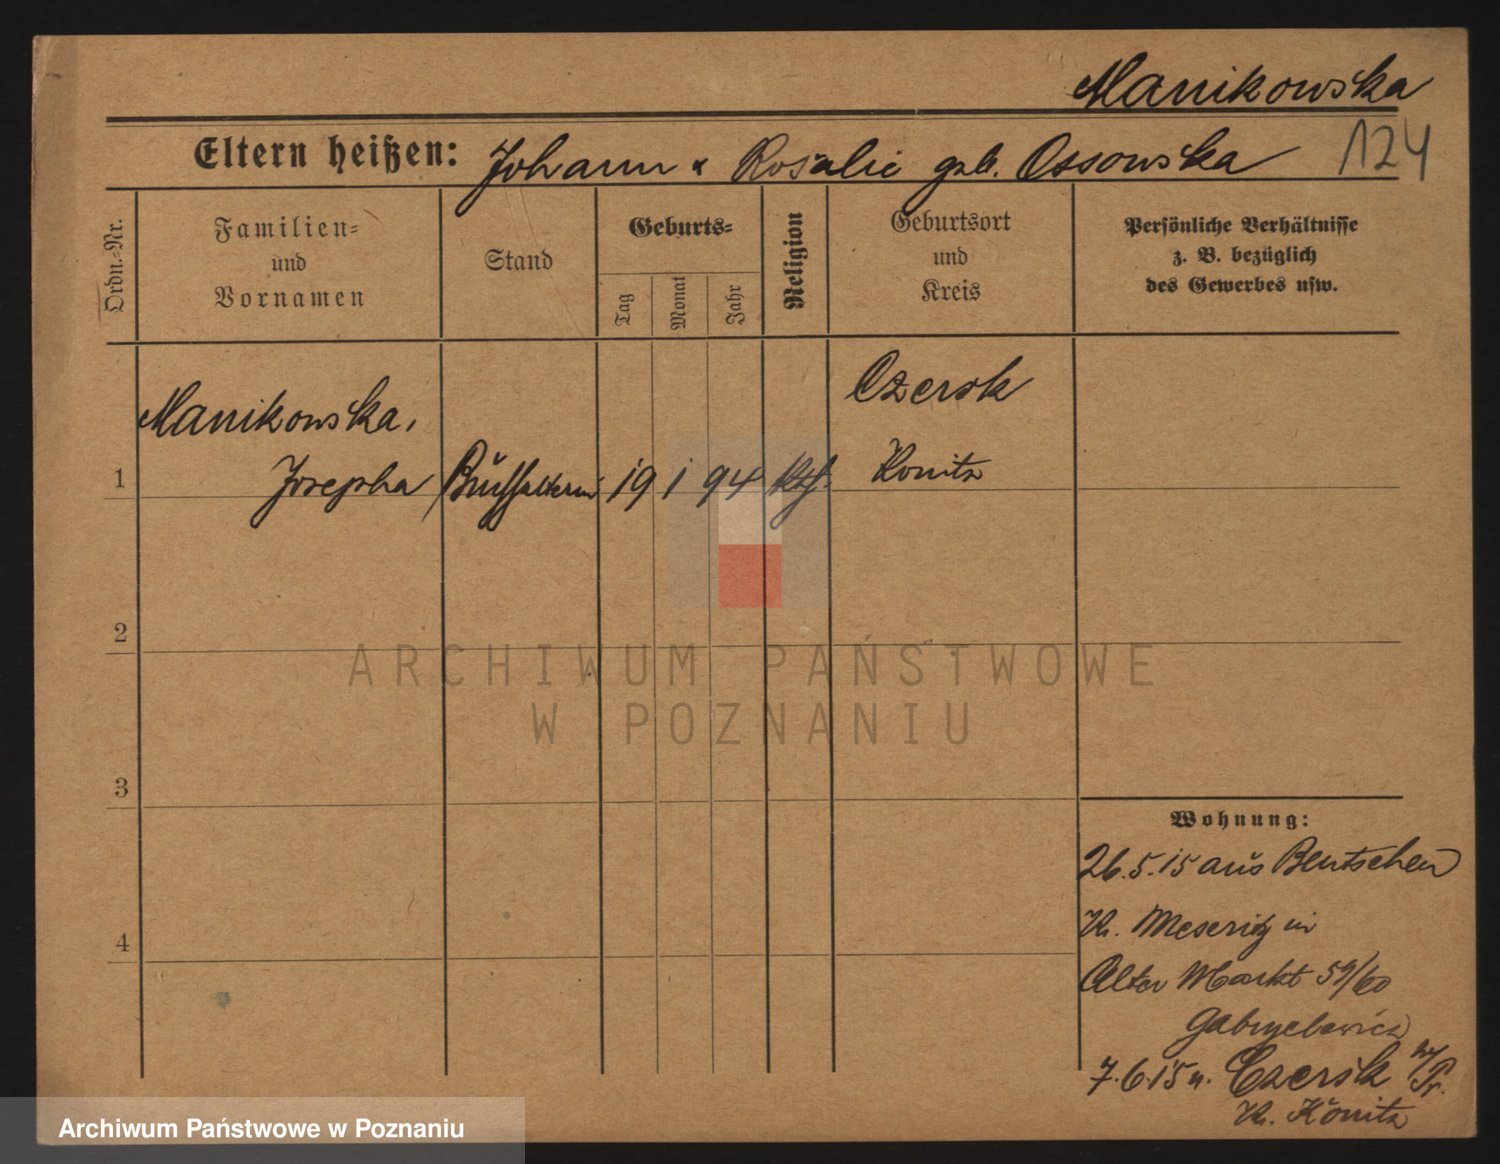 Manikowska
Eltern heißen: Johann & Rosalie geb. Ossowska
124
Ordn.-Nr.
Familien-
und
Vornamen
Stand
Geburts-
Tag
Monat
Jahr
Religion
Geburtsort
und
Kreis
Persönliche Verhältnisse
z. B. bezüglich
des Gewerbes usw.
Manikowska,
1 Josepha Buchhalterin 19 1 94 kth.
Czersk
Konitz
2
3
4
ARCHIWUM PAŃSTWOWE
W POZNANIU
Wohnung:
26.5.15 aus Bentschen
Kr. Meseritz in
Alter Markt 59/60
Gabryelewicz
7.6.15 n. Czersk W/Pr.
Kr. Konitz
Archiwum Państwowe w Poznaniu